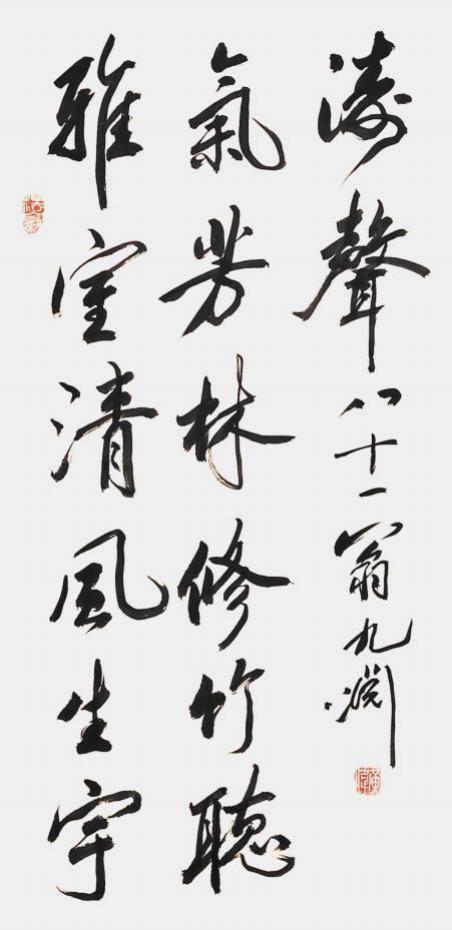 雅室清風生宇
氣芳林修竹聽
濤聲八十一翁九淵